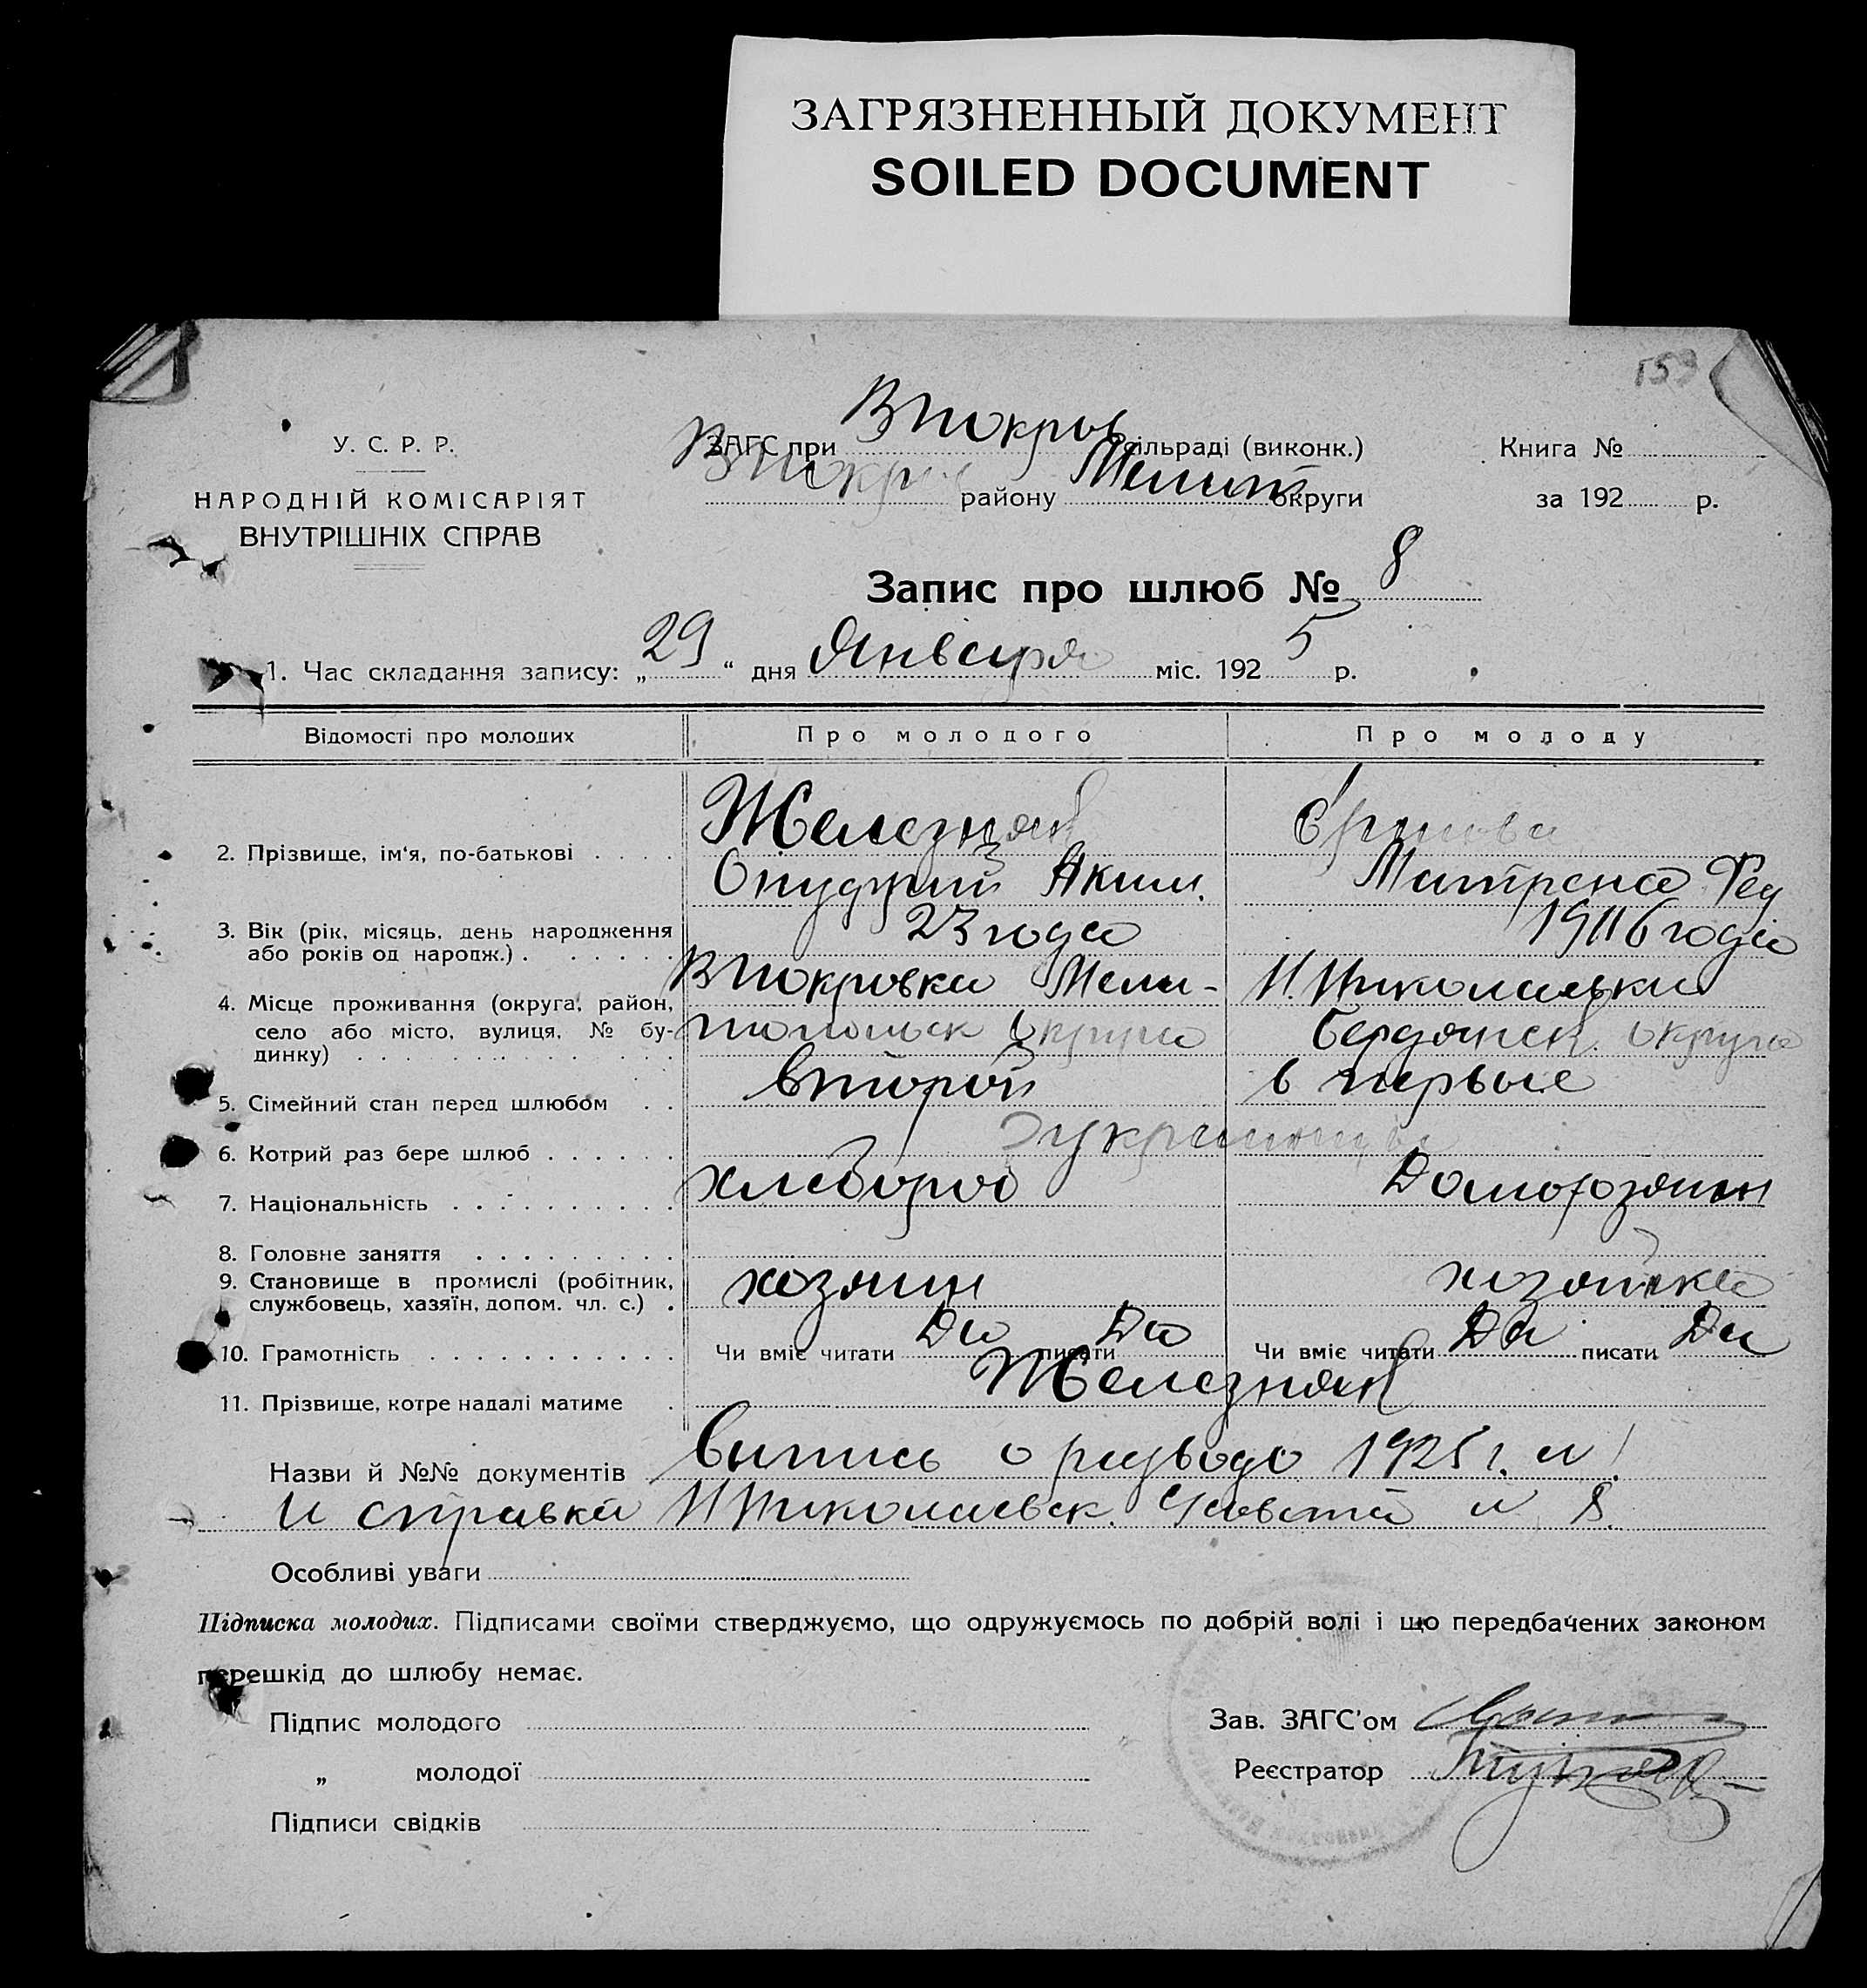 ЗАГРЯЗНЕННЫЙ ДОКУМЕНТ
SOILED DOCUMENT
У. С. Р. Р.
НАРОДНІЙ КОМІСАРІЯТ
ВНУТРІШНІХ СПРАВ
ЗАГС при ВПокров сільраді (виконк.)
ВПокр району Мелит округи
Книга №
за 192 р.
Запис про шлюб № 8
1. Час складання запису: „29“ дня Января міс. 1925 р.
Відомості про молодих Про молодого Про молоду
2. Прізвище, ім'я, по-батькові Железняк
Аким. Матрена Фед
3. Вік (рік, місяць, день народження або років од народж.) 23 года года
4. Місце проживання (округа, район, село або місто, вулиця, № будинку) ВПокровка Мели- Н.Николаевка
топольск округа Бердянск. округа
5. Сімейний стан перед шлюбом второй в первые
6. Котрий раз бере шлюб
7. Національність хлебороб
8. Головне заняття
9. Становище в промислі (робітник, службовець, хазяїн, допом. чл. с.) хозяин хозяйка
10. Грамотність Чи вміє читати Да писати Да Чи вміє читати Да писати Да
11. Прізвище, котре надалі матиме Железняк
Назви й №№ документів Выпись о разводе 1925 г. №
и справка ННиколаевск. № 8.
Особливі уваги
Підписка молодих. Підписами своїми стверджуємо, що одружуємось по добрій волі і що передбачених законом
перешкід до шлюбу немає.
Підпис молодого
Зав. ЗАГС'ом
„ молодої
Реєстратор
Підписи свідків